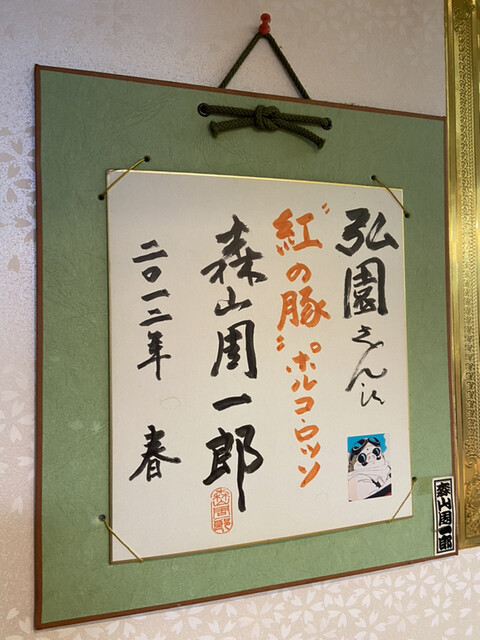 弘園さん江
"紅の豚"ポルコ・ロッソ
森山周一郎
二〇一二年 春
森山周一郎